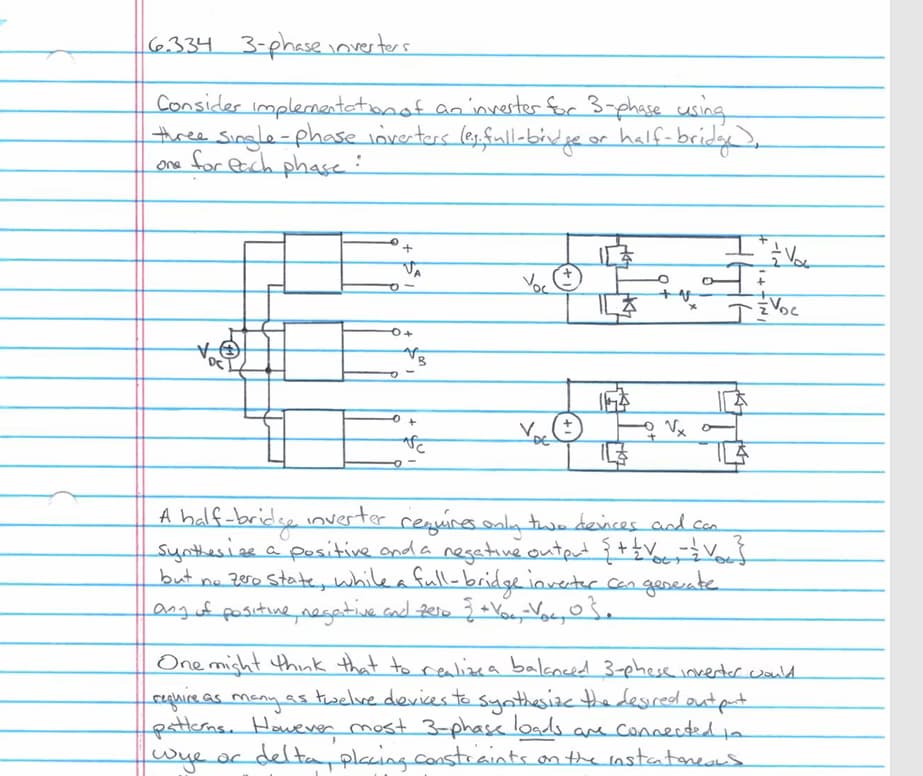 6.334 3-phase inverters
Consider implementation of an inverter for 3-phase using
three single-phase inverters (e.g., full-bridge or half-bridge),
one for each phase:
+
V_A
-
+ ½V_DC
-
V_DC
+ V_x -
+
½V_DC
-
V_DC
+
V_B
-
+
V_C
-
V_DC
+ V_x -
A half-bridge inverter requires only two devices and can
synthesize a positive and a negative output {+½V_DC, -½V_DC}
but no zero state, while a full-bridge inverter can generate
any of positive, negative and zero {+V_DC, -V_DC, 0}.
One might think that to realize a balanced 3-phase inverter would
require as many as twelve devices to synthesize the desired output
patterns. However, most 3-phase loads are connected in
wye or delta, placing constraints on the instantaneous